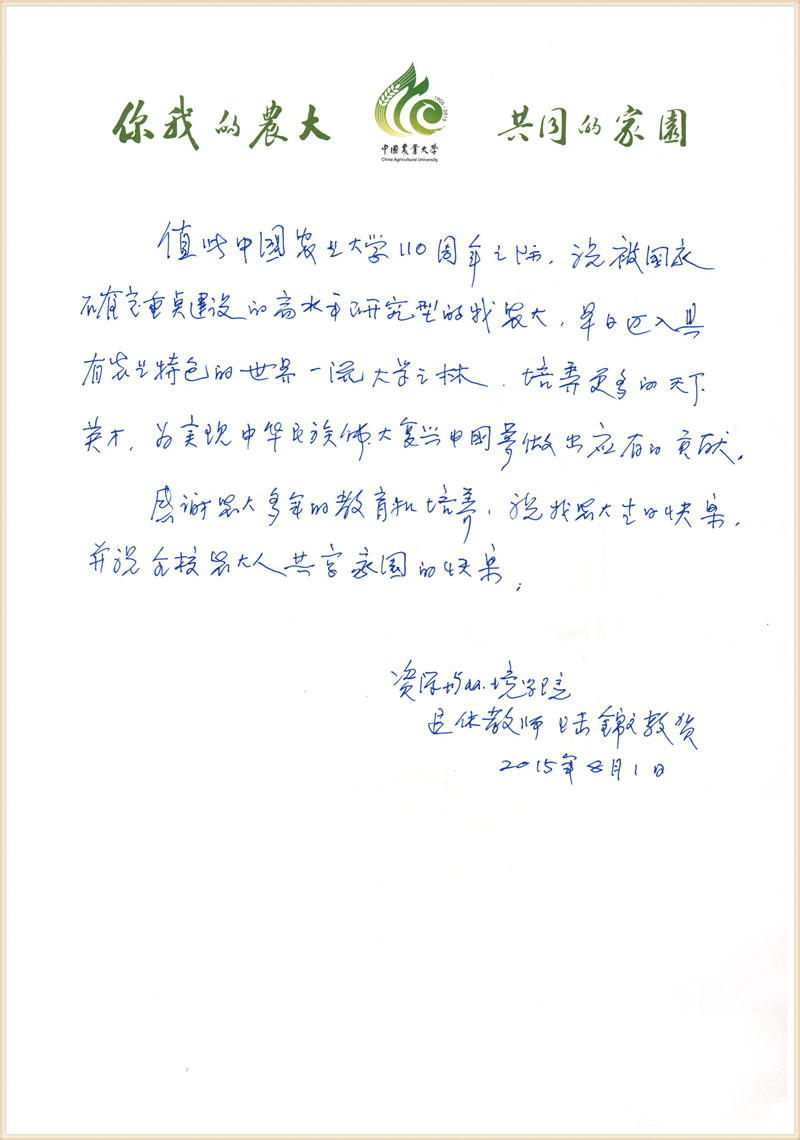 你我的農大
共同的家園
1905-2015
中国農業大学
China Agricultural University
值此中国农业大学110周年之际，祝被国家
确定重点建设的高水平研究型的我农大，早日迈入具
有农业特色的世界一流大学之林，培养更多的天下
英才，为实现中华民族伟大复兴中国梦做出应有的贡献。
感谢农大多年的教育和培养，祝我农大生日快乐，
并祝全校农大人共享家园的快乐；
资源与环境学院
退休教师 陆錦文敬贺
2015年8月1日